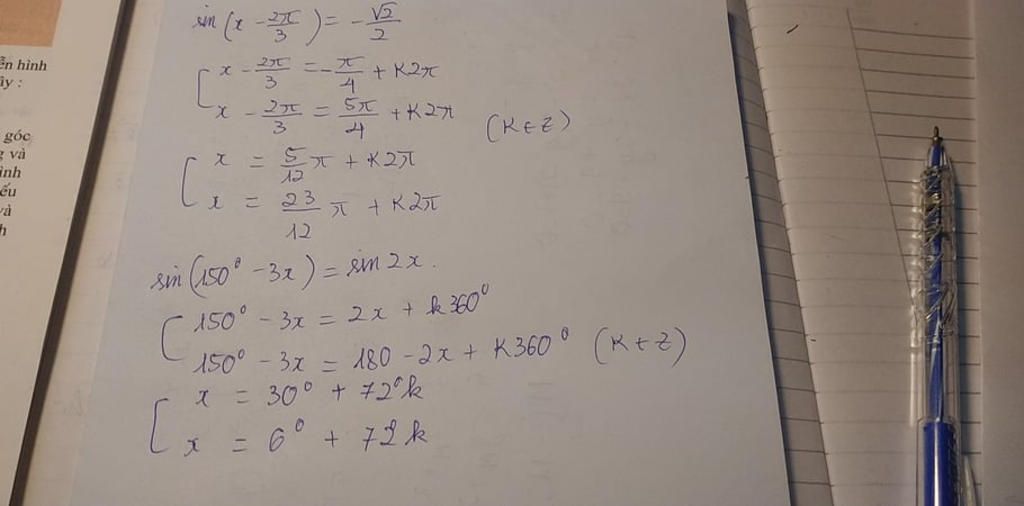 ễn hình
ây :
góc
g và
ình
ếu
và
h
sin(x - 2π/3) = - √2/2
[ x - 2π/3 = -π/4 + K2π
x - 2π/3 = 5π/4 + K2π (K∈Z)
[ x = 5/12 π + K2π
x = 23/12 π + K2π
sin(150° - 3x) = sin 2x.
[ 150° - 3x = 2x + k360°
150° - 3x = 180 - 2x + K360° (K∈Z)
[ x = 30° + 72°k
x = 6° + 72k